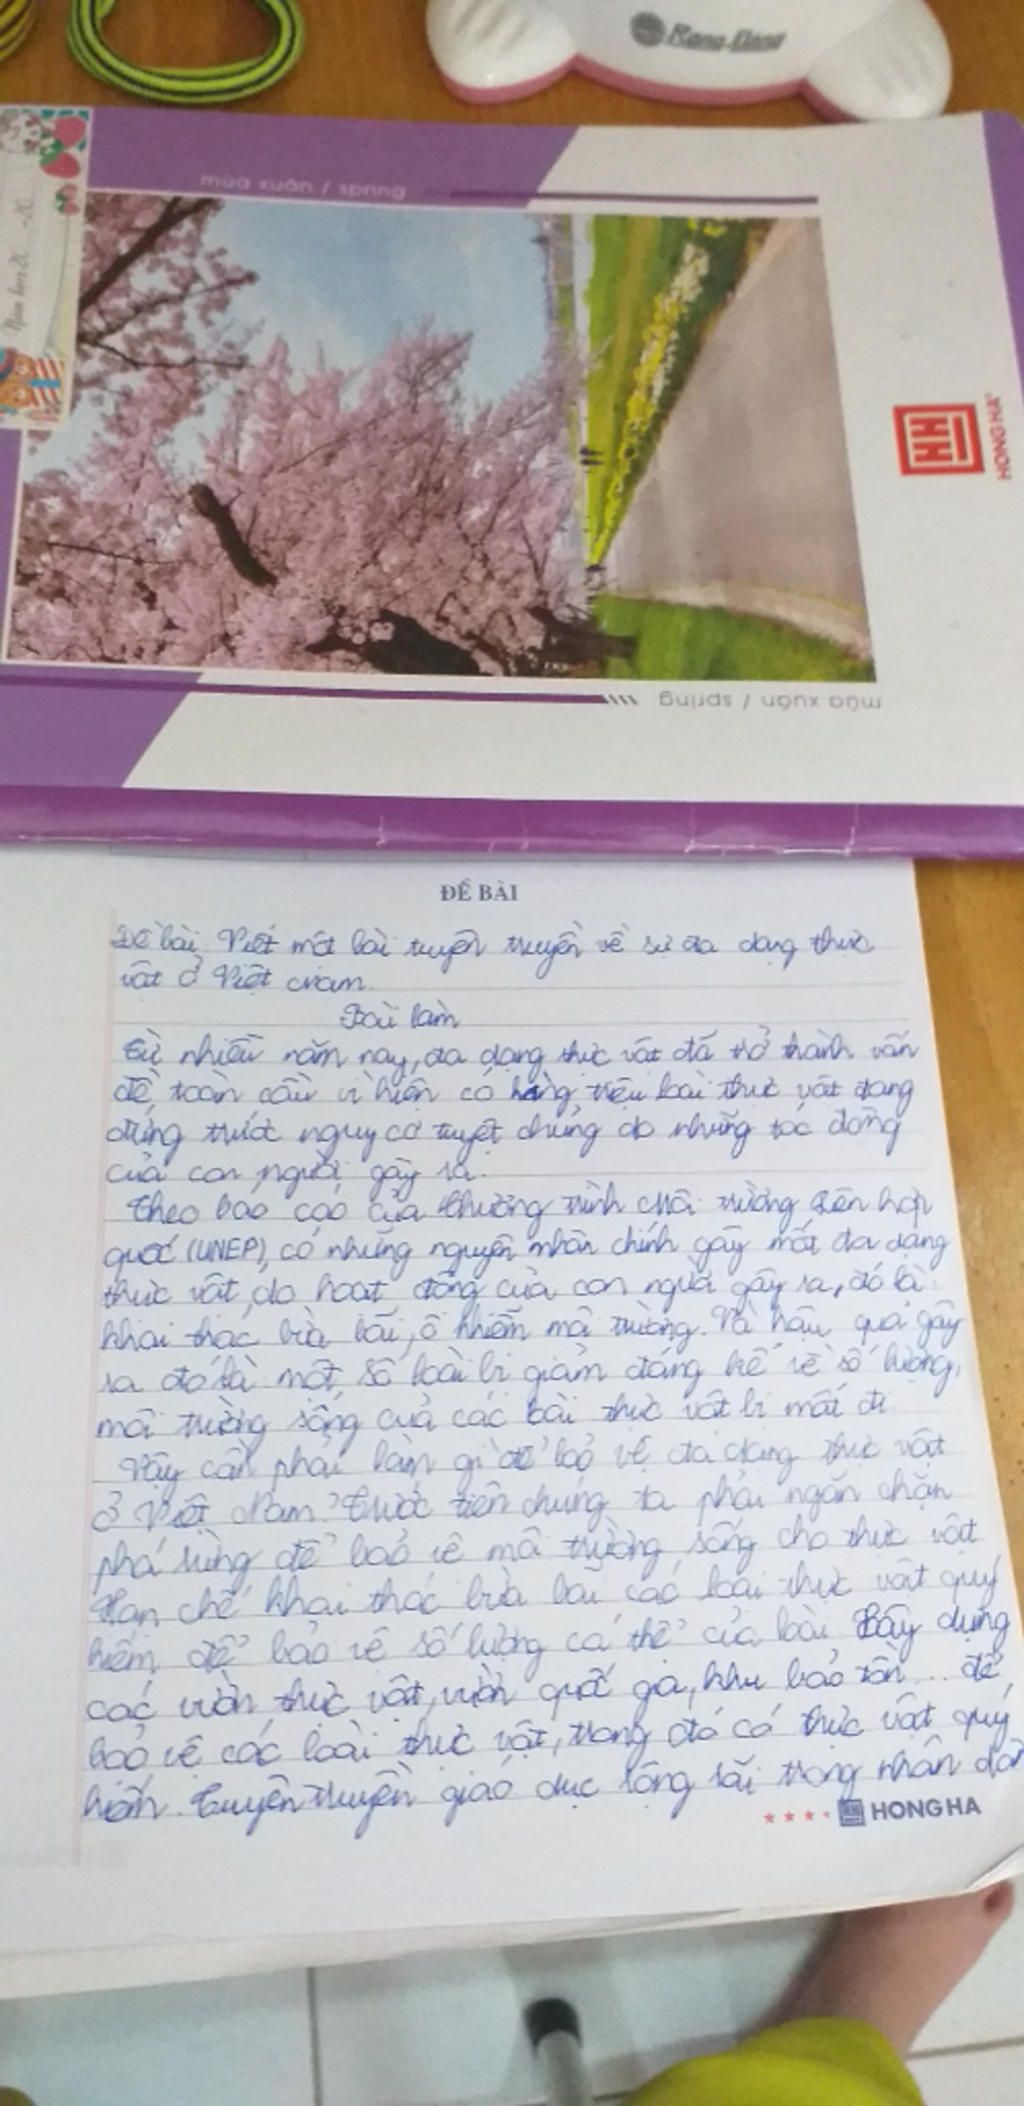 Rạng Đông
mùa xuân / spring
HH
HONG HA
mùa xuân / spring
ĐỀ BÀI
Đề bài Viết một bài tuyên truyền về sự đa dạng thực
vật ở Việt Nam.
Bài làm
Từ nhiều năm nay, đa dạng thực vật đã trở thành vấn
đề toàn cầu vì hiện có hàng triệu loài thực vật đang
đứng trước nguy cơ tuyệt chủng do những tác động
của con người gây ra.
Theo báo cáo của Chương trình Môi trường Liên hợp
quốc (UNEP), có những nguyên nhân chính gây mất đa dạng
thực vật, do hoạt động của con người gây ra, đó là:
khai thác bừa bãi, ô nhiễm môi trường. Và hậu quả gây
ra đó là một số loài bị giảm đáng kể về số lượng,
môi trường sống của các loài thực vật bị mất đi.
Vậy cần phải làm gì để bảo vệ đa dạng thực vật
ở Việt Nam? Trước tiên chúng ta phải ngăn chặn
phá rừng để bảo vệ môi trường sống cho thực vật
Hạn chế khai thác bừa bãi các loài thực vật quý
hiếm để bảo vệ số lượng cá thể của loài Xây dựng
các vườn thực vật, vườn quốc gia, khu bảo tồn... để
bảo vệ các loài thực vật, trong đó có thực vật quý
hiếm. Tuyên truyền giáo dục rộng rãi trong nhân dân
HONG HA